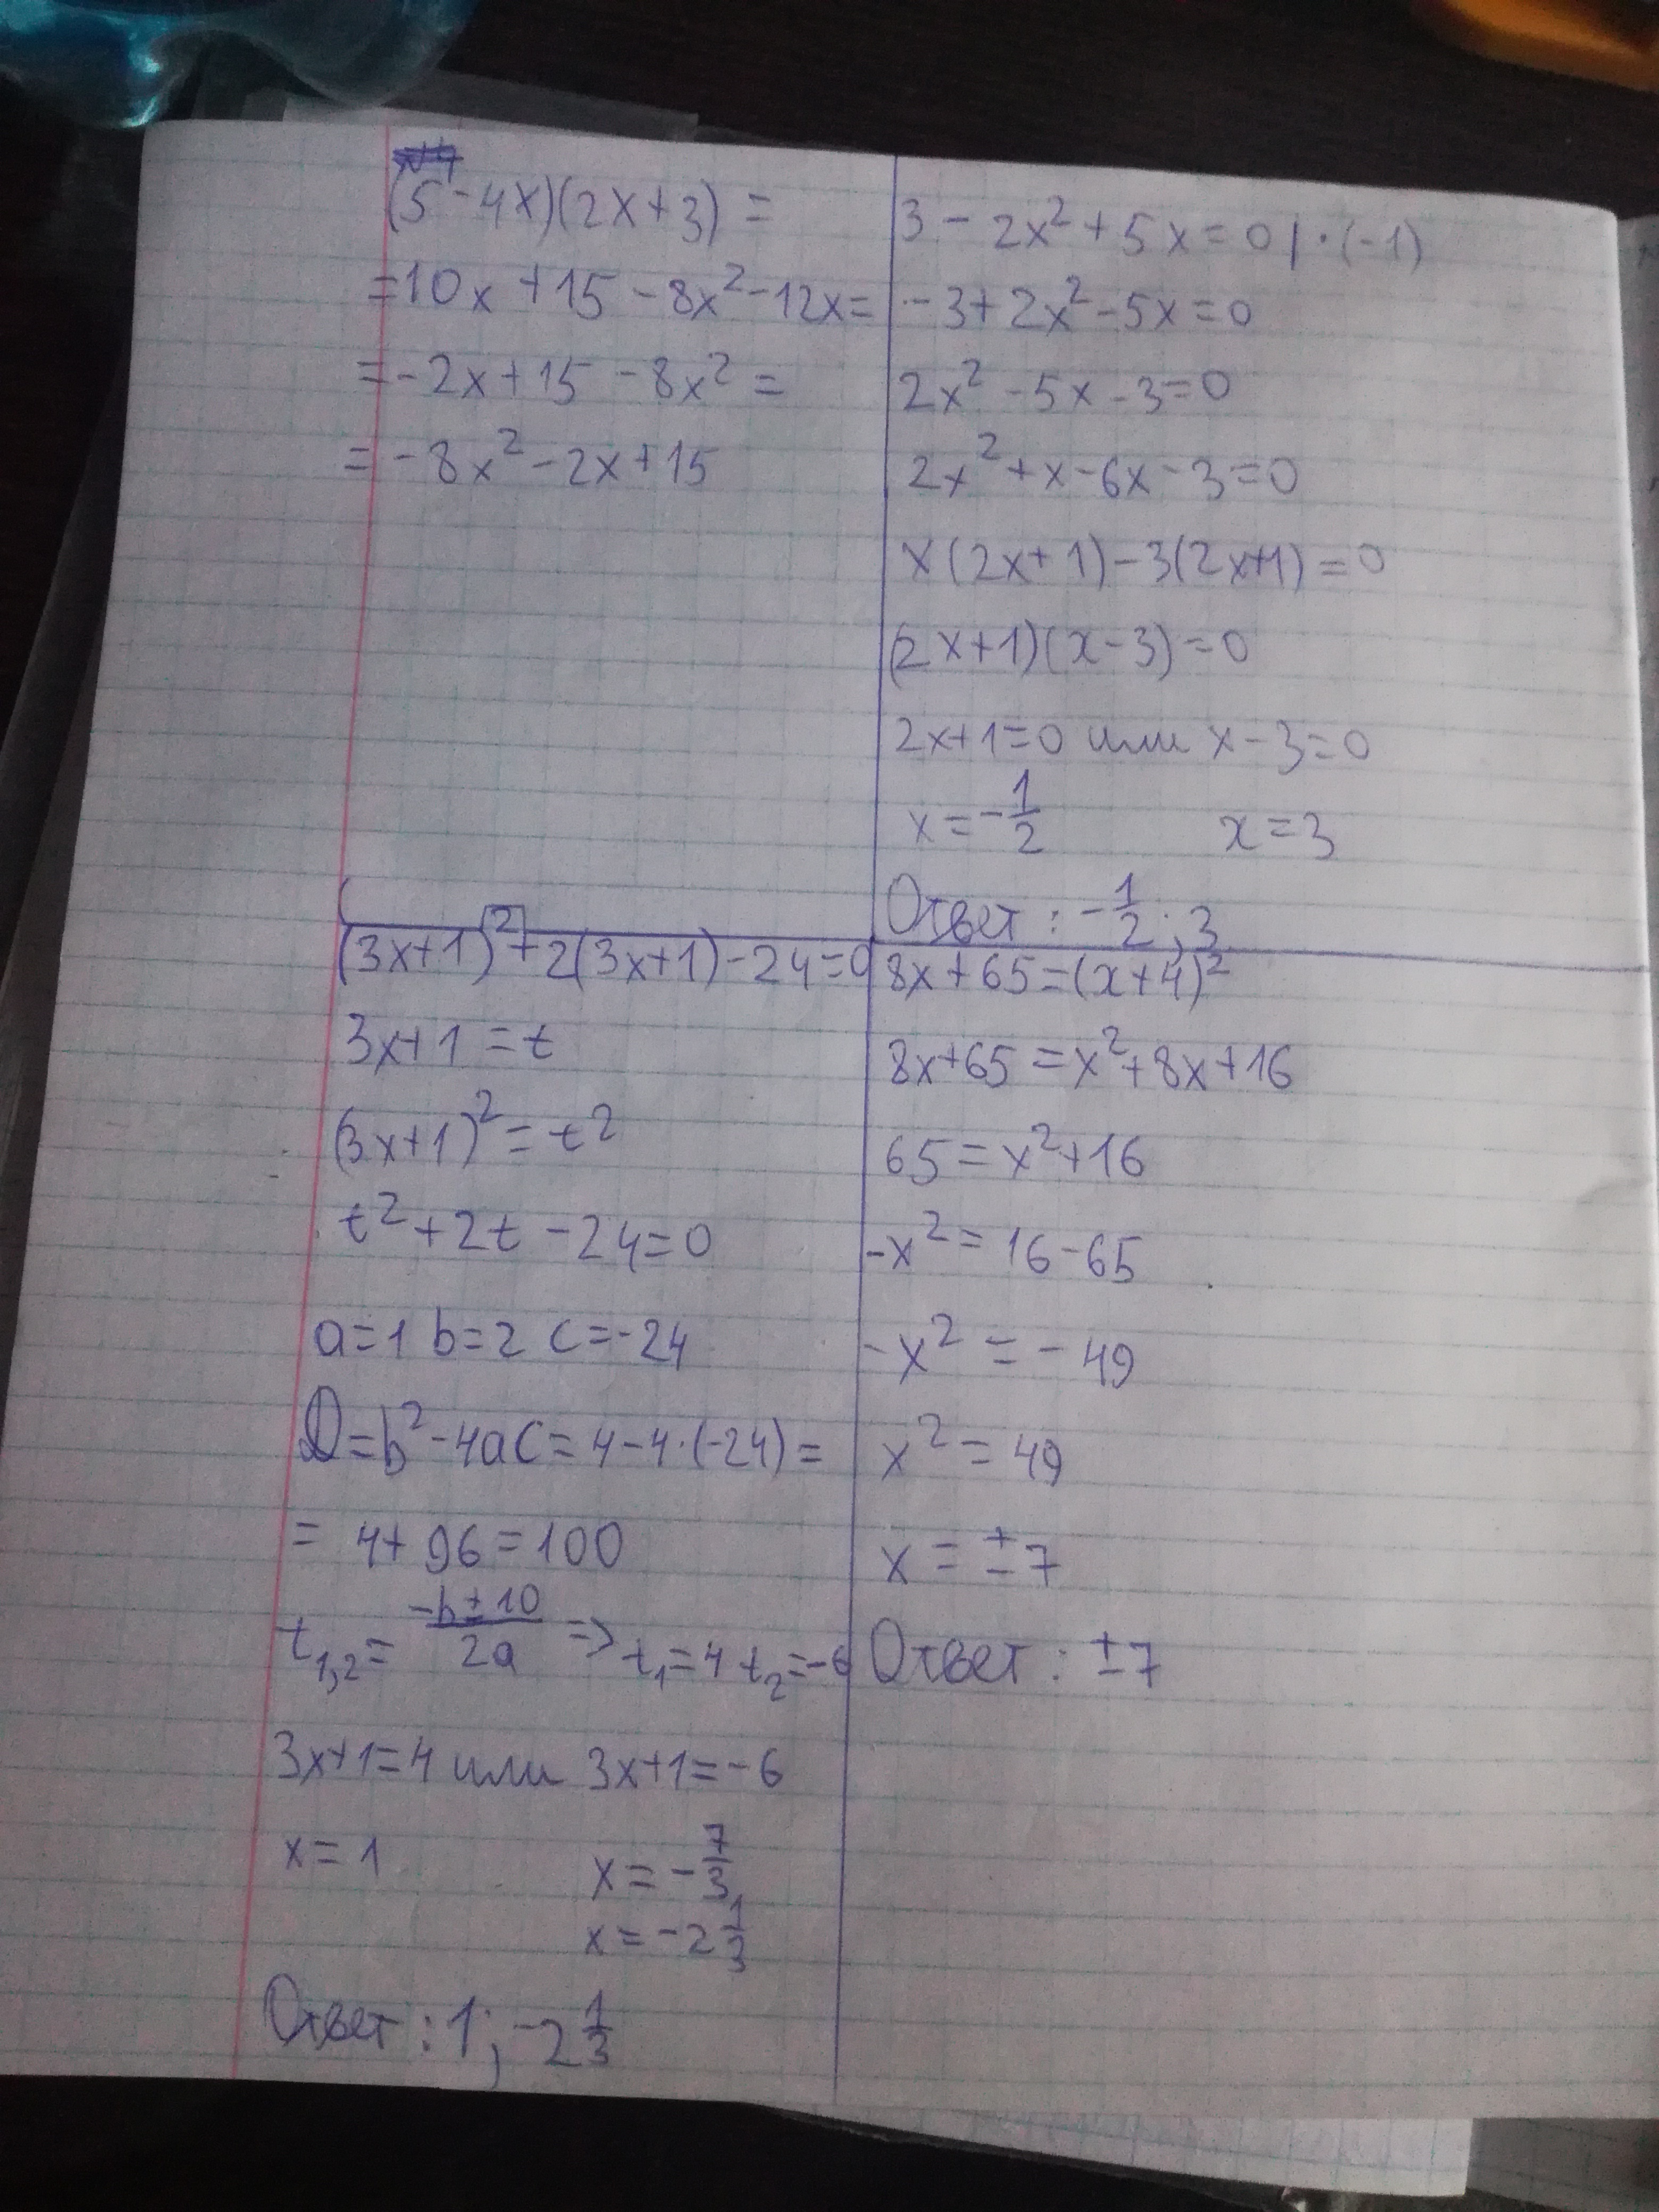 (5-4x)(2x+3)=
=10x+15-8x²-12x=
=-2x+15-8x²=
=-8x²-2x+15
3-2x²+5x=0|·(-1)
-3+2x²-5x=0
2x²-5x-3=0
2x²+x-6x-3=0
x(2x+1)-3(2x+1)=0
(2x+1)(x-3)=0
2x+1=0 или x-3=0
x=-1/2 x=3
Ответ: -1/2; 3
(3x+1)²+2(3x+1)-24=0
3x+1=t
(3x+1)²=t²
t²+2t-24=0
a=1 b=2 c=-24
D=b²-4ac=4-4·(-24)=
= 4+96=100
t₁,₂= (-b±10)/2a => t₁=4 t₂=-6
3x+1=4 или 3x+1=-6
x=1 x=-7/3
x=-2 1/3
Ответ: 1; -2 1/3
8x+65=(x+4)²
8x+65=x²+8x+16
65=x²+16
-x²=16-65
-x²=-49
x²=49
x=±7
Ответ: ±7